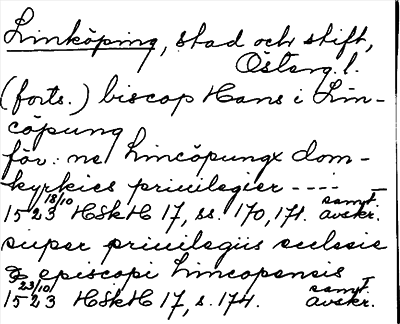 Linköping, stad och stift,
Österg. l.
(forts.) biscop Hans i Lin-
cöpung
för: ne Lincöpungx dom-
kyrkies priuilegier ---- —
1523 18/10 HSkH 17, ss. 170, 171. samt. avskr.
super priuilegiis ecclesie
& episcopi Lincopensis —
1523 23/10 HSkH 17, s. 174. samt. avskr.